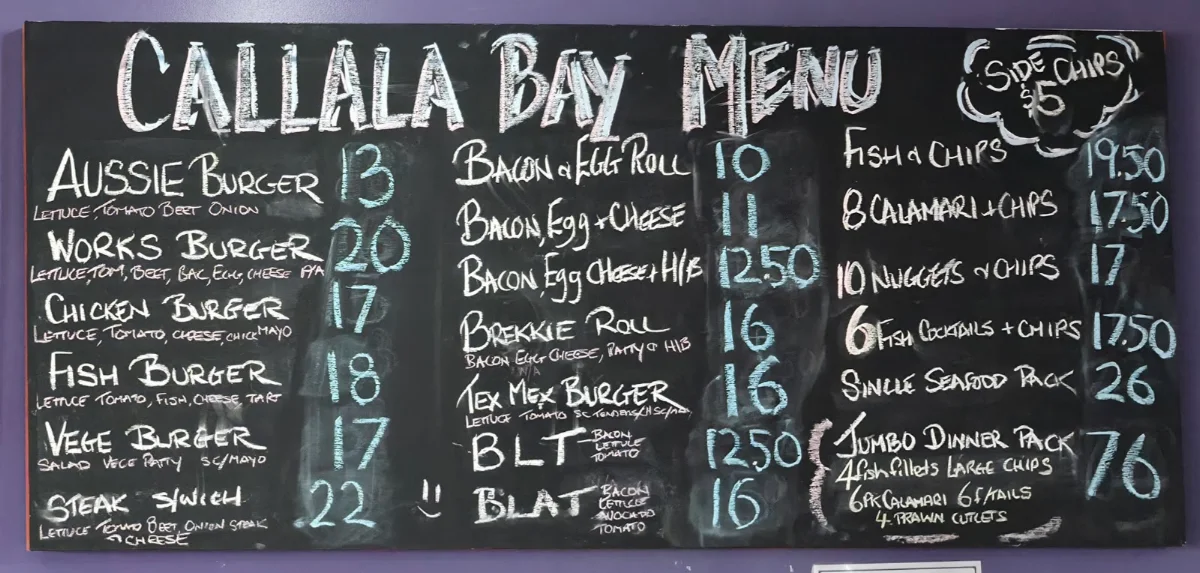 CALLALA BAY MENU
SIDE CHIPS
$5
AUSSIE BURGER 13
LETTUCE, TOMATO BEET ONION
WORKS BURGER 20
LETTUCE, TOM, BEET, BAC, EGG, CHEESE P/A
CHICKEN BURGER 17
LETTUCE, TOMATO, CHEESE, CHICK MAYO
FISH BURGER 18
LETTUCE TOMATO, FISH, CHEESE, TART
VEGE BURGER 17
SALAD VEGE PATTY SC/MAYO
STEAK S/WICH 22
LETTUCE TOMATO BEET, ONION STEAK
CHEESE
BACON & EGG ROLL 10
BACON, EGG + CHEESE 11
BACON, EGG CHEESE + H/B 12.50
BREKKIE ROLL 16
BACON EGG CHEESE, PATTY & H/B
TEX MEX BURGER 16
LETTUCE TOMATO SC TENDERS
BLT 12.50
BACON
LETTUCE
TOMATO
BLAT 16
BACON
LETTUCE
AVOCADO
TOMATO
FISH & CHIPS 19.50
8 CALAMARI + CHIPS 17.50
10 NUGGETS & CHIPS 17
6 FISH COCKTAILS + CHIPS 17.50
SINGLE SEAFOOD PACK 26
JUMBO DINNER PACK 76
4 fish fillets LARGE CHIPS
6PK CALAMARI 6 F/TAILS
4 PRAWN CUTLETS